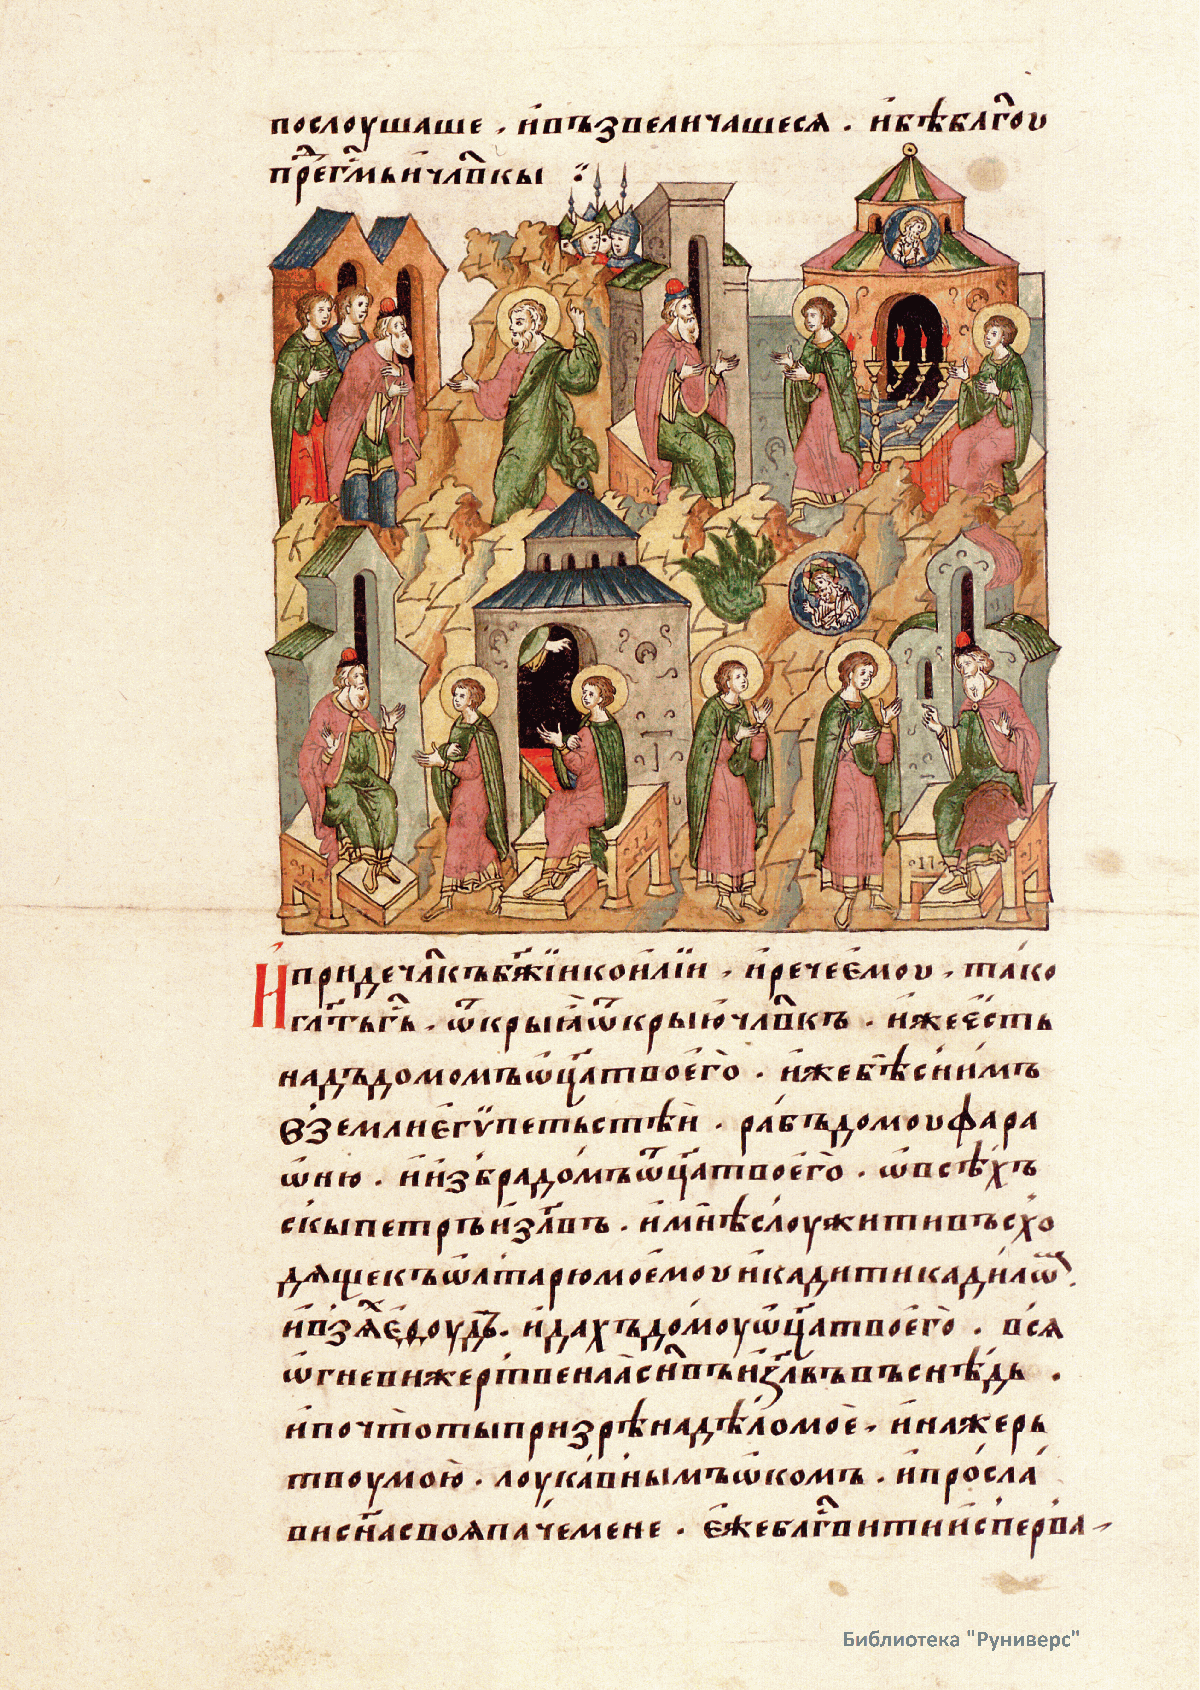 послоушаше , и҆въ звеличашесѧ . и҆бѣ бл҃гоу
пре҃гм҃ь и҆ чл҃вкы :
И҆ приде чл҃къ бж҃їи ко и҆лїи , и҆ рече є҆моу , тако
гл҃тъ гь҃ . ѿкрыꙗ҆ ѿкрыю҆ чл҃вкъ . и҆же є҆сть
надъ домомъ ѡ҆ц҃а твоє҆го . и҆же бѣ с ни́мъ
в земли є҆гѵ̈петьстѣй . ра́бъ домоу фара
ѡ҆ню . и҆ и҆збра до́мъ ѿц҃а твоє҆го . ѿ всѣ́хъ
скыпетръ и҆зл҃въ . и҆ мнѣ слоужити въсхо
дѧще къ ѡ҆лтарю моє҆моу и҆ кадити кадилѡ҆ .
и҆ взѧ҆ є҆доудъ . и҆ дахъ до́моу ѡ҆ц҃а твоє҆го . всѧ
ѡ҆гневи жертвенаа҆ сн҃въ и҆зл҃въ въ снѣдь .
и҆ почто ты призрѣ на дѣло моѐ , и҆ на жерь
твоу мою̀ . лоука́внымъ ѡ҆комъ . и҆ просла́
ви сн҃а своѧ па́че мене . є҆же бл҃гвити и҆сперва
Библиотека "Руниверс"